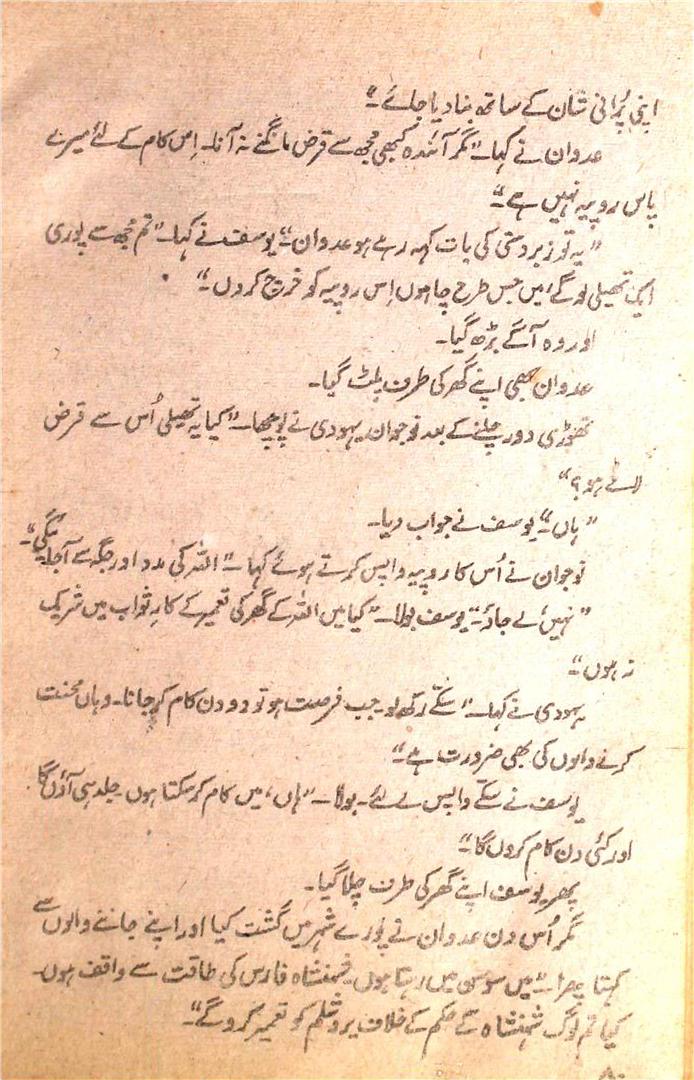 اپنی پُرانی شان کے ساتھ بنا دیا جائے۔“
عدوان نے کہا۔ ”مگر آئندہ کبھی مُجھ سے قرض مانگنے نہ آنا۔ اِس کام کے لئے میرے
پاس روپیہ نہیں ہے۔“
”یہ تو زبردستی کی بات کہہ رہے ہو عدوان۔“ یوسف نے کہا۔ ”تم مُجھ سے پوری
ایک تھیلی لو گے، میں جس طرح چاہوں اِس روپیہ کو خرچ کروں۔“
اور وہ آگے بڑھ گیا۔
عدوان بھی اپنے گھر کی طرف پلٹ گیا۔
تھوڑی دور چلنے کے بعد نوجوان یہودی نے پوچھا۔ ”کیا یہ تھیلی اُس سے قرض
لائے ہو؟“
”ہاں۔“ یوسف نے جواب دیا۔
نوجوان نے اُس کا روپیہ واپس کرتے ہوئے کہا۔ ”اللہ کی مدد اور جگہ سے آجائیگی۔“
”نہیں، لے جاؤ۔“ یوسف بولا۔ ”کیا میں اللہ کے گھر کی تعمیر کے کارِ ثواب میں شریک
نہ ہوں۔“
یہودی نے کہا۔ ”سکّے رکھ لو۔ جب فرصت ہو تو دو دن کام کر جانا۔ وہاں محنت
کرنے والوں کی بھی ضرورت ہے۔“
یوسف نے سکّے واپس لے لئے۔ بولا۔ ”ہاں، میں کام کر سکتا ہوں۔ جلد ہی آؤں گا
اور کئی دن کام کروں گا۔“
پھر یوسف اپنے گھر کی طرف چلا گیا۔
مگر اُس دن عدوان نے پورے شہر میں گشت کیا اور اپنے جاننے والوں سے
کہتا پھرا۔ ”میں سوسن میں رہتا ہوں۔ شہنشاہ فارس کی طاقت سے واقف ہوں۔
کیا تم لوگ شہنشاہ کے حکم کے خلاف یروشلم کو تعمیر کرو گے۔“